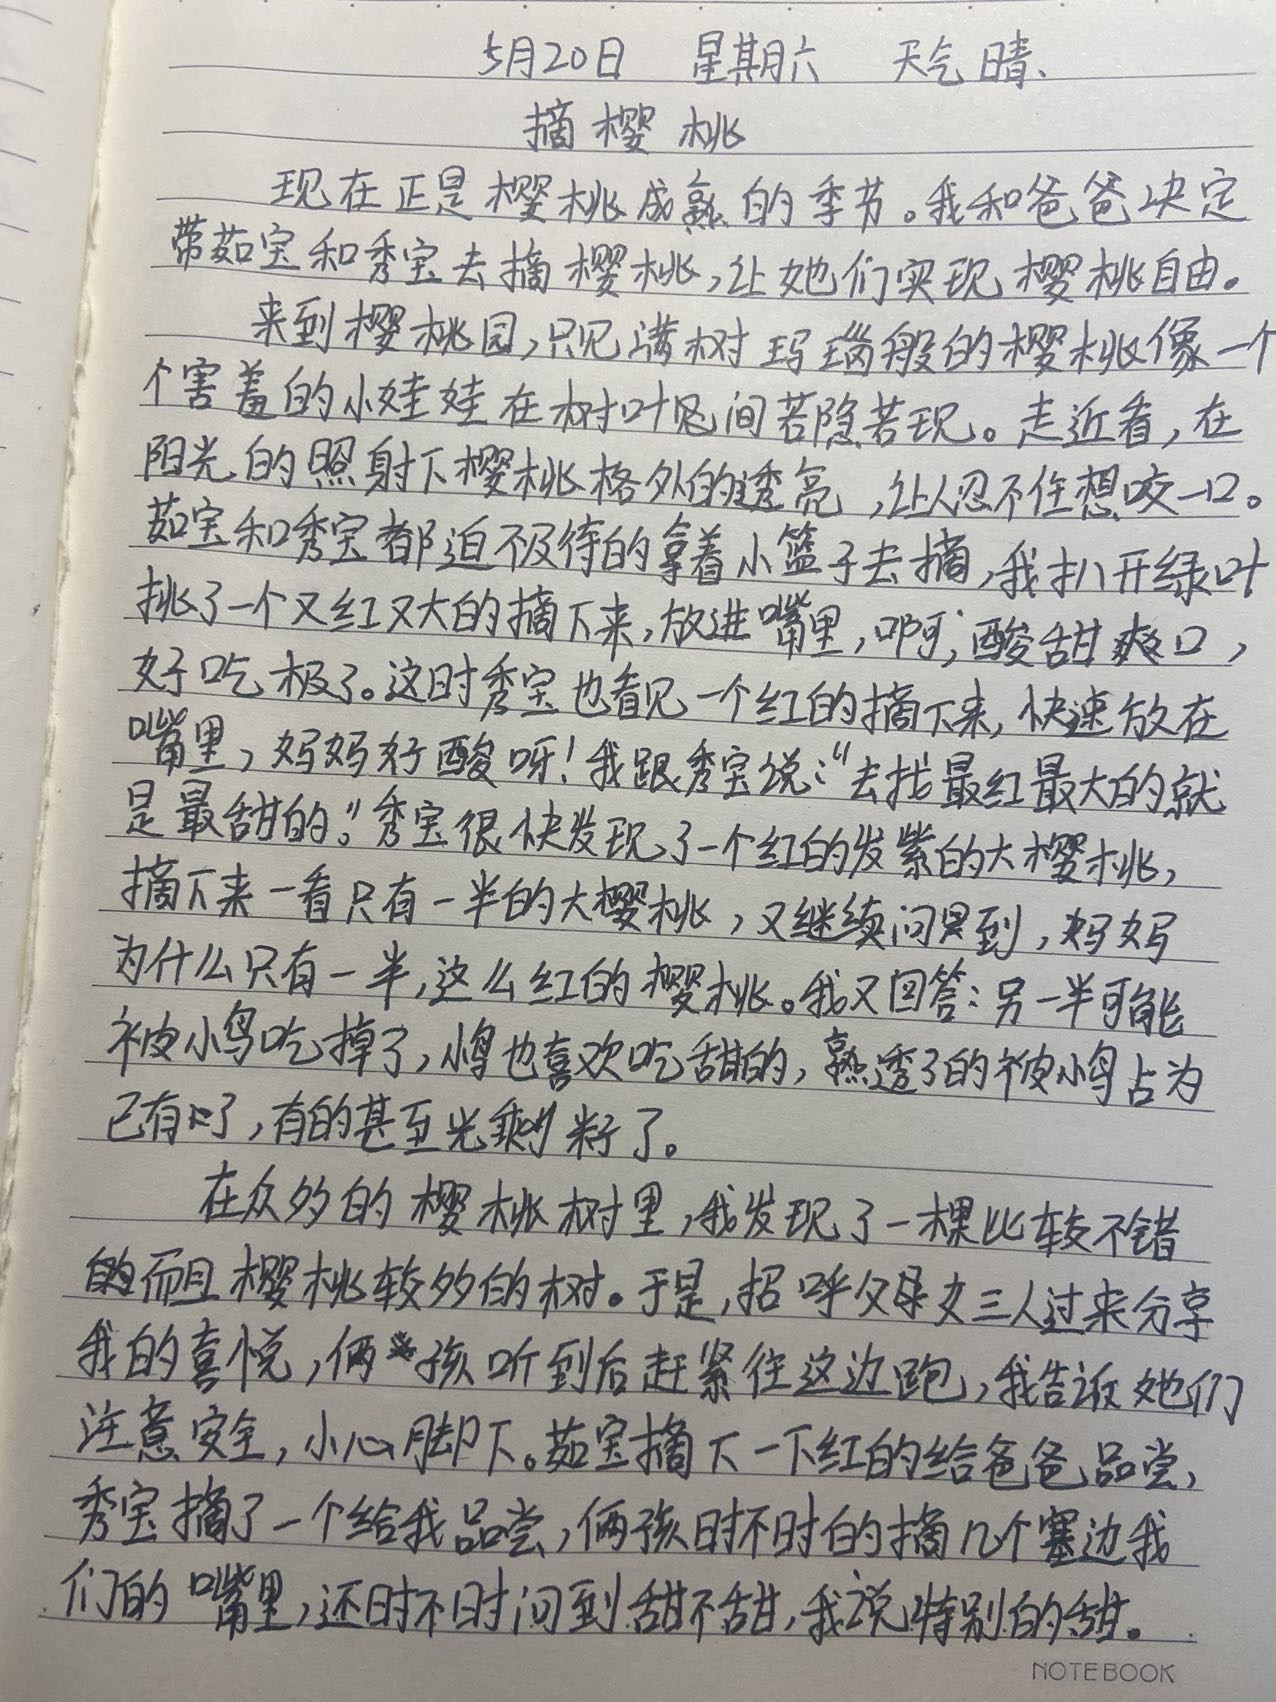 5月20日 星期六 天气晴、
摘樱桃
现在正是樱桃成熟的季节。我和爸爸决定
带茹宝和秀宝去摘樱桃,让她们实现樱桃自由。
来到樱桃园,只见满树玛瑙般的樱桃像一个
个害羞的小娃娃在树叶间若隐若现。走近看,在
阳光的照射下樱桃格外的透亮,让人忍不住想咬一口。
茹宝和秀宝都迫不及待的拿着小篮子去摘,我扒开绿叶
挑了一个又红又大的摘下来,放进嘴里,啊,酸甜爽口,
好吃极了。这时秀宝也看见一个红的摘下来,快速放在
嘴里,妈妈好酸呀!我跟秀宝说:“去找最红最大的就
是最甜的。”秀宝很快发现了一个红的发紫的大樱桃,
摘下来一看只有一半的大樱桃,又继续问到,妈妈
为什么只有一半,这么红的樱桃。我又回答:另一半可能
被小鸟吃掉了,小鸟也喜欢吃甜的,熟透了的被小鸟占为
己有了,有的甚至光剩籽了。
在众多的樱桃树里,我发现了一棵比较不错
的而且樱桃较多的树。于是,招呼父女三人过来分享
我的喜悦,俩孩听到后赶紧往这边跑,我告诉她们
注意安全,小心脚下。茹宝摘下一下红的给爸爸品尝,
秀宝摘了一个给我品尝,俩孩时不时的摘几个塞边我
们的嘴里,还时不时问到甜不甜,我说特别的甜。
NOTEBOOK